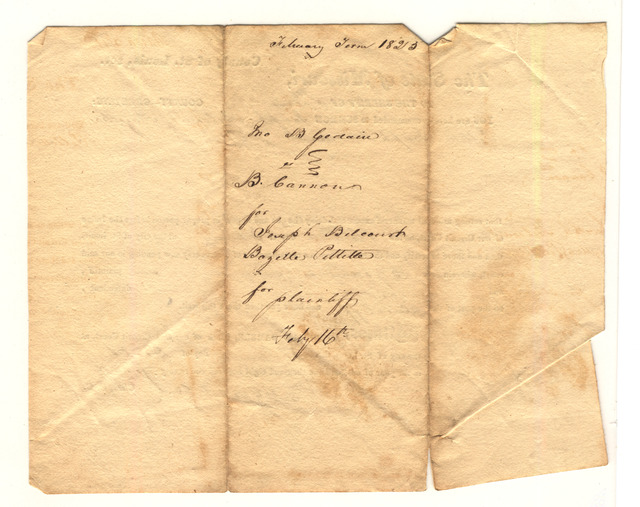 February Term 1823
Jno B Gedair
vs
B. Cannon
for
Joseph Belcourt
Bazette Pettitte
for plaintiff
Feby 16th